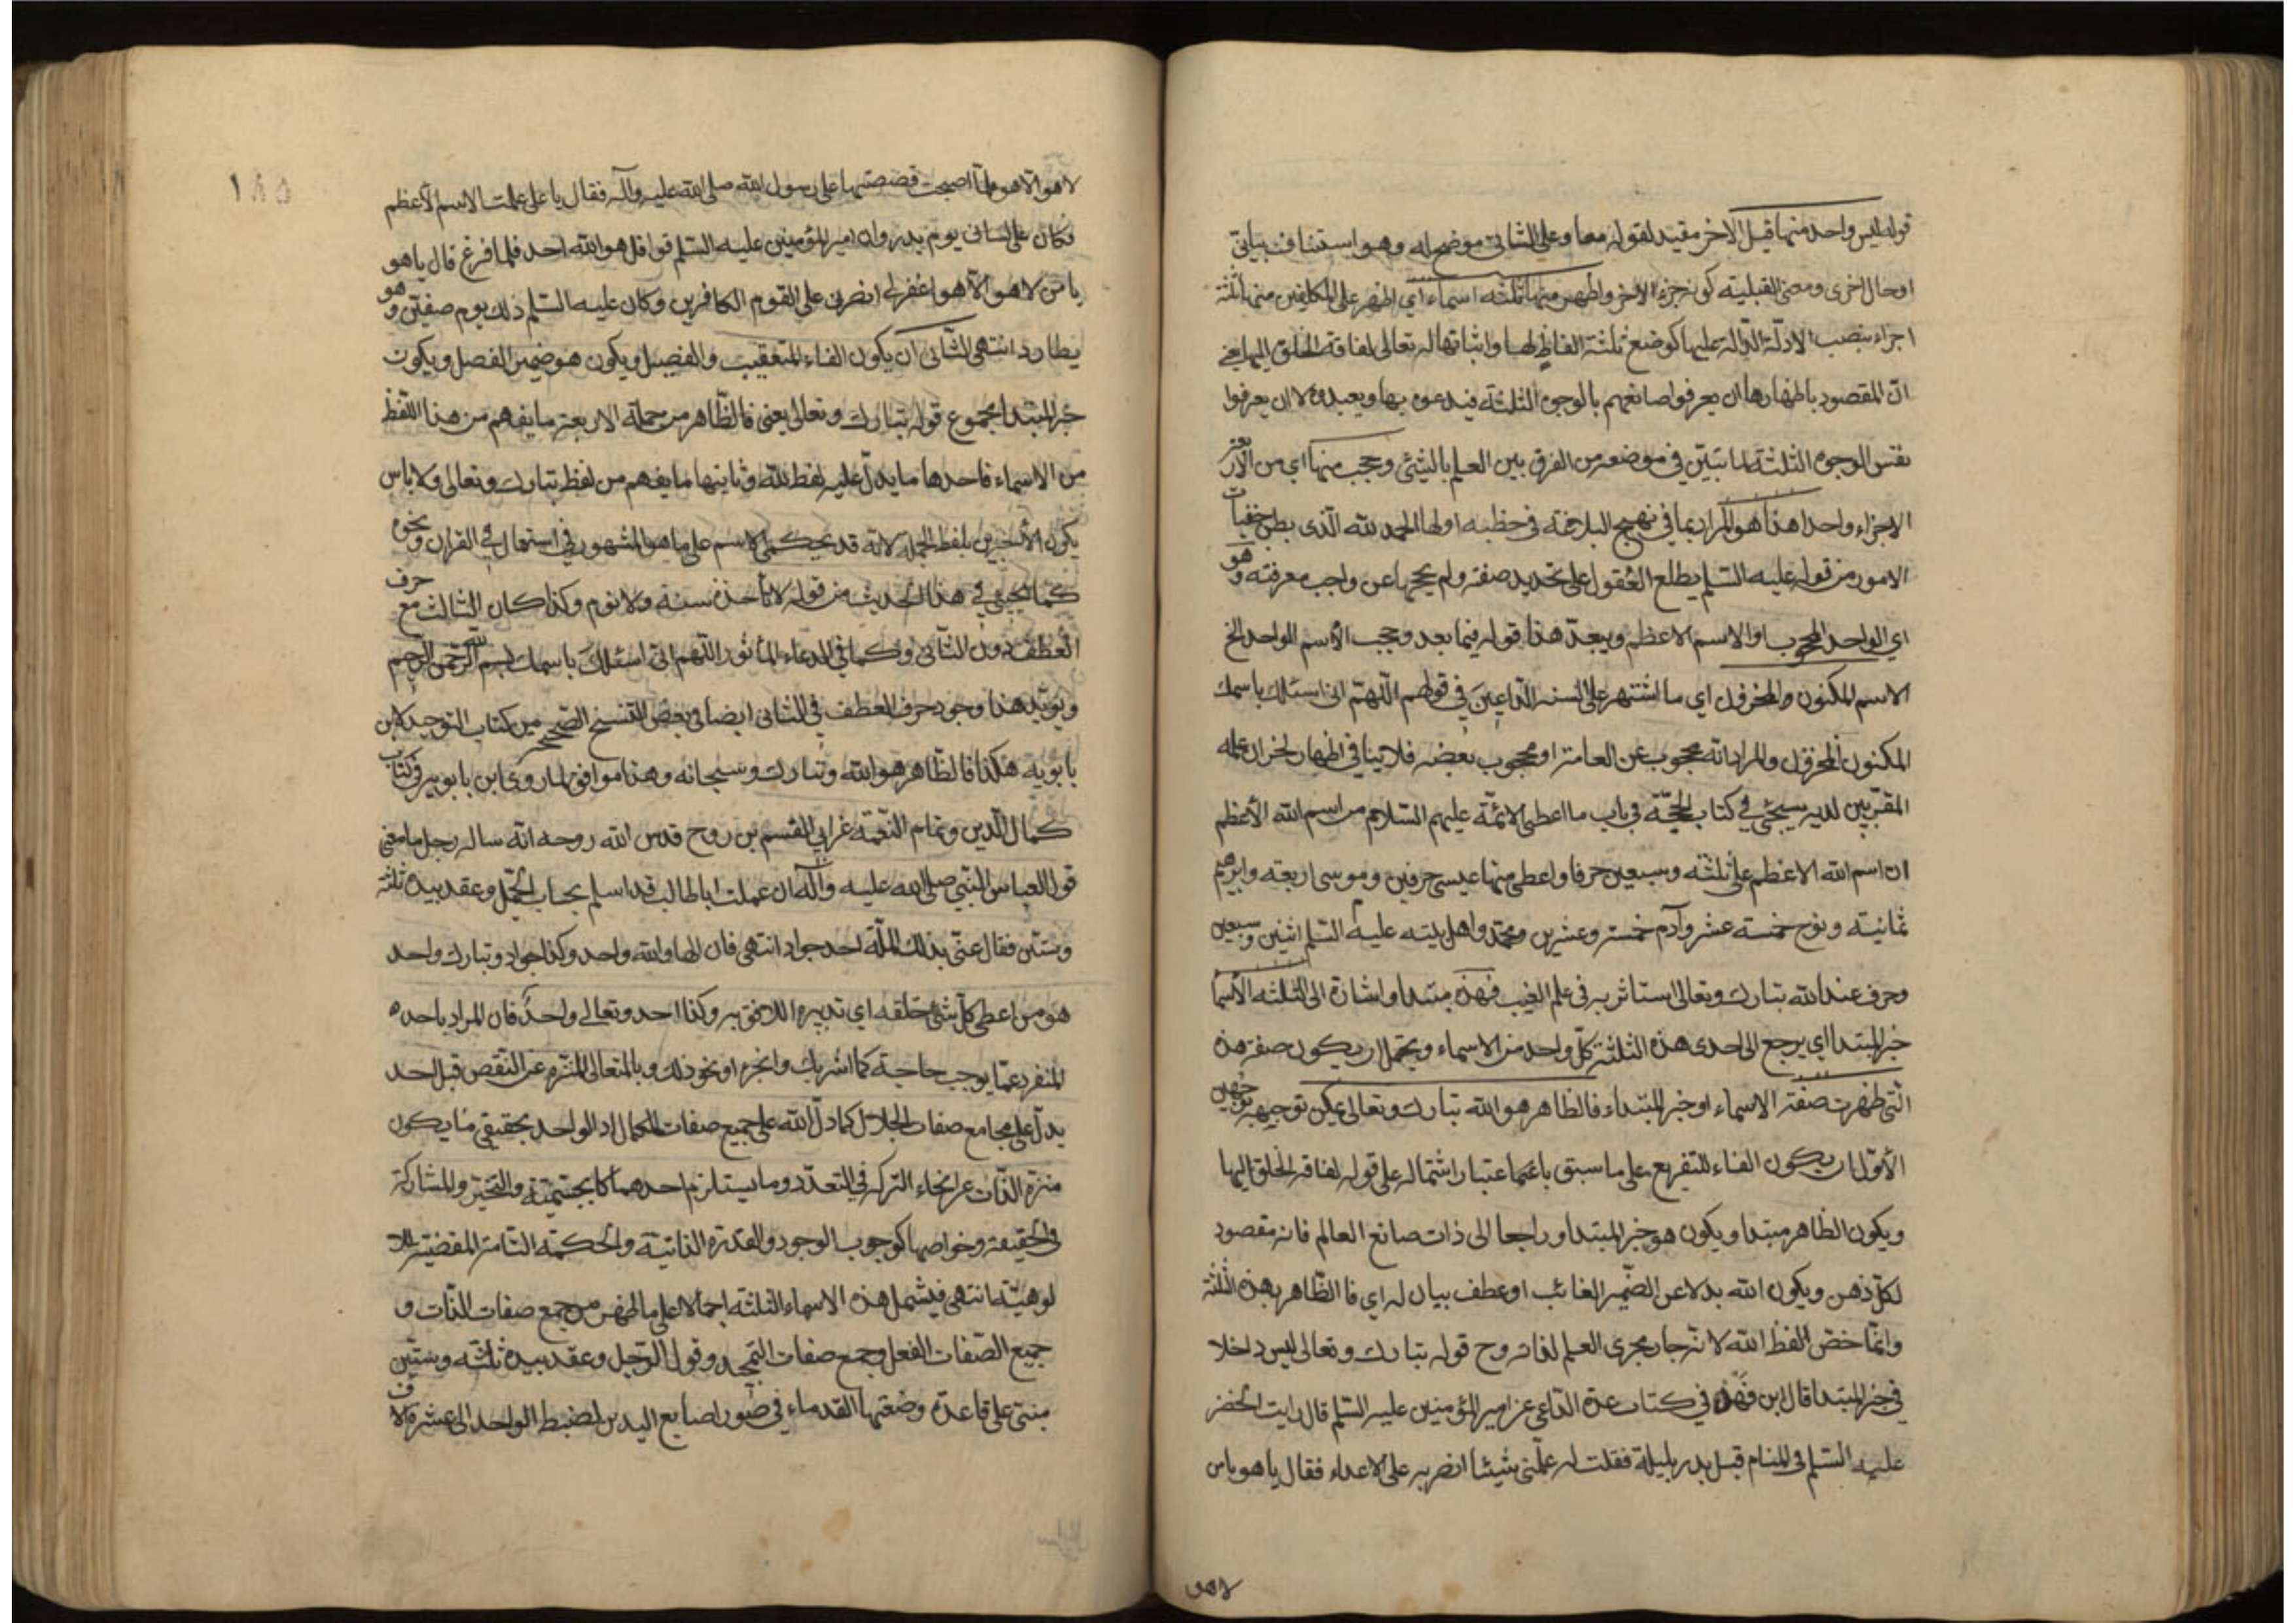 قوله ليس واحد منها قبل الآخر مقيد لقوله معا وعلى الثاني موضح له وهو استئناف بياني
او حال اخرى ومعنى القبلية كونه جزء الاخر واظهر منها ثلثة اسماء اي اظهر على المكلفين منها ثلثة
اجزاء بنصب الادلة الدالة عليها كوضع ثلثة الفاظ لها واثباتها له تعالى لفاقة الخلق اليها يعني
ان المقصود باظهارها ان يعرفوا صانعهم بالوجوه الثلثة فيدعوه بها ويعبدوه لا ان يعرفوا
نفس الوجوه الثلثة لما تبين في موضعه من الفرق بين العلم بالشئ وحجب منها اي من الاربعة
الاجزاء واحدا هذا هو المراد بما في نهج البلاغة في خطبه اولها الحمد لله الذى بطن خفيات
الامور من قوله عليه السلم يطلع العقول على تحديد صفته ولم يحجبها عن واجب معرفته وهو
اي الواحد المحجوب او الاسم الاعظم ويبعد هذا قوله فيما بعد وحجب الاسم الواحد الخ
الاسم المكنون والمخزون اي ما اشتهر على السنه الداعين في قولهم اللهم انى اسئلك باسمك
المكنون المخزون والمراد انه محجوب عن العامة او محجوب بعضه فلا ينافي اظهاره لخزان علمه
المقربين لديه سيجئ في كتاب الحجة في باب ما اعطى الائمة عليهم السلام من اسم الله الأعظم
ان اسم الله الاعظم على ثلثة وسبعين حرفا واعطى منها عيسى حرفين وموسى اربعة وابرهيم
ثمانية ونوح خمسة عشر وآدم خمسة وعشرين ومحمد واهل بيته عليه السلم اثنين وسبعين
وحرف عند الله تبارك وتعالى استاثر به في علم الغيب فهذه مبتدا واشارة الى الثلثة الأسماء
خبر المبتدا اي يرجع الى احدى هذه الثلثة كل واحد من الاسماء ويحتمل ان يكون صفة هذه
التي ظهرت صفة الاسماء او خبر المبتداء فالظاهر هو الله تبارك وتعالى يمكن توجيهه بوجهين
الأول ان يكون الفاء للتفريع على ما سبق باعتبار اشتماله على قوله لفاقة الخلق اليها
ويكون الظاهر مبتدا ويكون هو خبر المبتدا وراجعا الى ذات صانع العالم فانه مقصود
لكل ذهن ويكون الله بدلا عن الضمير الغائب او عطف بيان له اي فا الظاهر بهذه الثلثة
وانما خص لفظ الله لانه جار مجرى العلم لذاته وح قوله تبارك وتعالى ليس داخلا
في خبر المبتدا قال ابن فهد في كتاب عدة الداعي عن امير المؤمنين عليه السلم قال رايت الخضر
عليه السلم في المنام قبل بدر بليلة فقلت له علمني شيئا انصر به على الاعداء فقال يا هو يا من
لا هو
لا هو الا هو فلما اصبحت قصصتها على رسول الله صلى الله عليه وآله فقال يا على علمت الاسم الأعظم
فكان على لساني يوم بدر وان امير المؤمنين عليه السلم قرا قل هو الله احد فلما فرغ قال يا هو
يا من لا هو الا هو اغفر لي انصرني على القوم الكافرين وكان عليه السلم ذلك يوم صفين وهو
يطارد انتهى الثانى ان يكون الفاء للتعقيب والفصيل ويكون هو ضمير الفصل ويكون
خبر المبتدا مجموع قوله تبارك وتعالى يعني فالظاهر من جملة الاربعة ما يفهم من هذا اللفظ
من الاسماء فاحدها ما يدل عليه لفظ الله وثانيها ما يفهم من لفظ تبارك وتعالى ولا باس
بكون الأخيرين بلفظ الجملة لانه قد يحكى الاسم على ما هو المشهور في استعماله في القران ونحوه
كما يجئ في هذا الحديث من قوله لا تأخذه سنة ولا نوم وكذا كان الثالث مع حرف
العطف دون الثاني وكما في الدعاء المأثور اللهم اني اسئلك باسمك بسم الله الرحمن الرحيم
ويؤيد هذا وجود حرف العطف في الثاني ايضا في بعض النسخ الصحيحة من كتاب التوحيد لابن
بابويه هكذا فالظاهر هو الله وتبارك وسبحانه وهذا موافق لما روى ابن بابويه في كتاب
كمال الدين وتمام النعمة عن ابي القسم بن روح قدس الله روحه انه ساله رجل ما معنى
قول العباس للنبي صلى الله عليه وآله ان عمك ابا طالب قد اسلم بحساب الجمل وعقد بيده ثلثة
وستين فقال عنى بذلك اله احد جواد انتهى فان الها والله واحد وكذا جواد وتبارك واحد
هو من اعطى كل شئ خلقه اي تدبيره اللائق به وكذا احد وتعالى واحد فان المراد باحد
المنفرد عما يوجب حاجة كما اشربك وانجره او نحو ذلك وبالمتعالى المنزه عن النقص قبل احد
يدل على مجامع صفات الجلال كما دل الله على جميع صفات الكمال اذ الواحد بحقيقى ما يكون
منزه الذات عن انحاء التركب في التعدد وما يستلزم احدهما كالجسمية والتحيز والمشاركة
في الحقيقة وخواصها كوجوب الوجود والقدرة الذاتية والحكمة التامة المقضية للا
لوهية انتهى فيشمل هذه الاسماء الثلثة اجمالا على ما ظهر من جميع صفات الذات و
جميع الصفات الفعل وجمع صفات التمجيد وقول الرجل وعقد بيده ثلثة وستين
مبني على قاعدة وضعتها القدماء في صور اصابع اليدين لضبط الواحد الى عشرة الاف